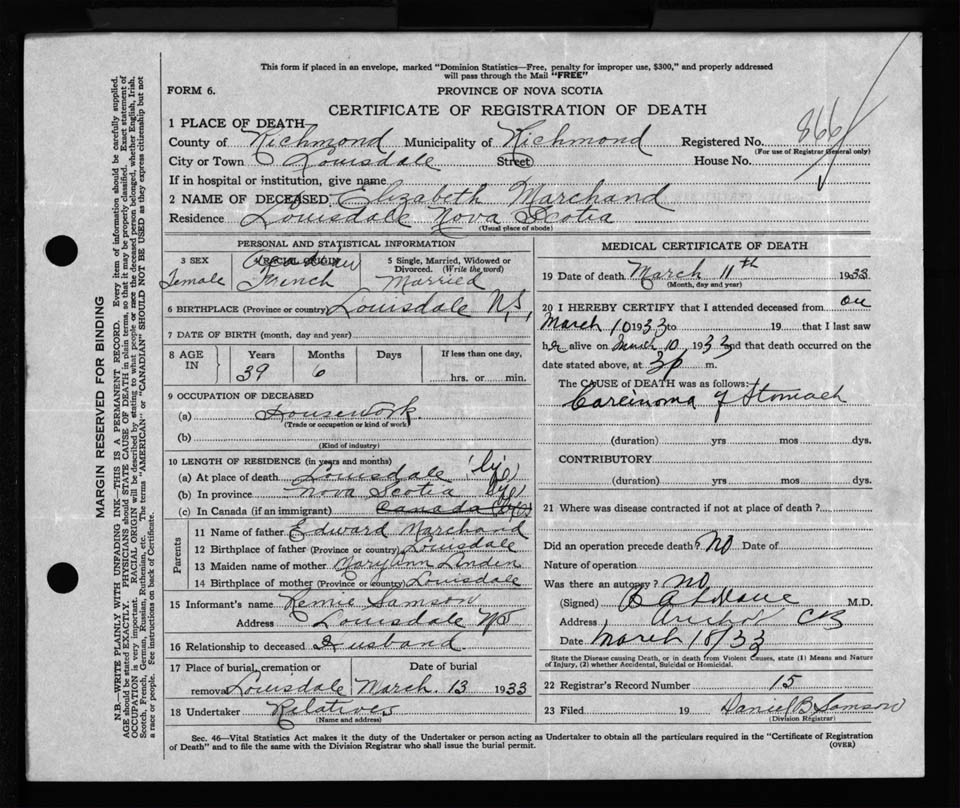 This form if placed in an envelope, marked "Dominion Statistics—Free, penalty for improper use, $300," and properly addressed
will pass through the Mail "FREE"
FORM 6.
PROVINCE OF NOVA SCOTIA
CERTIFICATE OF REGISTRATION OF DEATH
866
1 PLACE OF DEATH
County of Richmond Municipality of Richmond Registered No.
(For use of Registrar General only)
City or Town Louisdale Street House No.
If in hospital or institution, give name
2 NAME OF DECEASED Elizabeth Marchand
Residence Louisdale Nova Scotia
(Usual place of abode)
PERSONAL AND STATISTICAL INFORMATION
3 SEX 4 RACIAL ORIGIN 5 Single, Married, Widowed or Divorced. (Write the word)
Female French Married
6 BIRTHPLACE (Province or country) Louisdale N.S,
7 DATE OF BIRTH (month, day and year)
8 AGE IN Years Months Days If less than one day,
39 6 hrs. or min.
9 OCCUPATION OF DECEASED
(a) Housework
(Trade or occupation or kind of work)
(b)
(Kind of industry)
10 LENGTH OF RESIDENCE (in years and months)
(a) At place of death Louisdale (life)
(b) In province Nova Scotia life
(c) In Canada (if an immigrant) Canada
Parents
11 Name of father Edward Marchand
12 Birthplace of father (Province or country) Louisdale
13 Maiden name of mother Mary Ann Linden
14 Birthplace of mother (Province or country) Louisdale
15 Informant's name Remie Samson
Address Louisdale NS
16 Relationship to deceased Husband
17 Place of burial, cremation or removal Louisdale Date of burial March. 13 1933
18 Undertaker Relatives
(Name and address)
MEDICAL CERTIFICATE OF DEATH
19 Date of death March 11th 1933
(Month, day and year)
20 I HEREBY CERTIFY that I attended deceased from on
March 10 1933 to 19 that I last saw
her alive on March 10, 1933 and that death occurred on the
date stated above, at 3 p m.
The CAUSE of DEATH was as follows:
Carcinoma of Stomach
(duration) yrs mos dys.
CONTRIBUTORY
(duration) yrs mos dys.
21 Where was disease contracted if not at place of death?
Did an operation precede death? No Date of
Nature of operation
Was there an autopsy? no
(Signed) M.D.
Address Arichat CB
Date March 18/33
State the Disease causing Death, or in death from Violent Causes, state (1) Means and Nature
of Injury, (2) whether Accidental, Suicidal or Homicidal.
22 Registrar's Record Number 15
23 Filed 19 Daniel B Samson
(Division Registrar)
Sec. 46—Vital Statistics Act makes it the duty of the Undertaker or person acting as Undertaker to obtain all the particulars required in the "Certificate of Registration
of Death" and to file the same with the Division Registrar who shall issue the burial permit. (OVER)
MARGIN RESERVED FOR BINDING
N.B.—WRITE PLAINLY WITH UNFADING INK—THIS IS A PERMANENT RECORD. Every item of information should be carefully supplied.
AGE should be stated EXACTLY. PHYSICIANS should STATE CAUSE OF DEATH in plain terms, so that it may be properly classified. Exact statement of
OCCUPATION is very important. RACIAL ORIGIN will be described by stating to what people or race the deceased person belonged, whether English, Irish,
Scotch, French, German, Russian, Ruthenian, etc. The terms "AMERICAN" or "CANADIAN" SHOULD NOT BE USED as they express citizenship but not
a race or people. See instructions on back of Certificate.